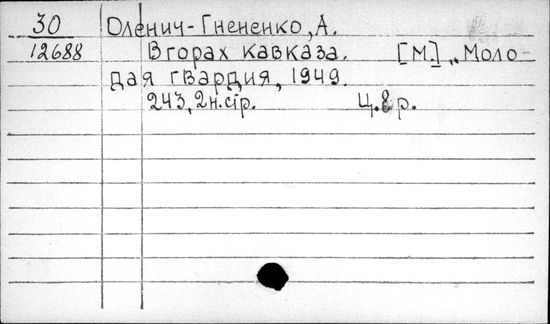 30 Оленич-Гнененко, А.
12688 В горах кавказа. [М.] „Моло-
дая гвардия, 1949.
243, 2н.стр. Ц. 8 р.